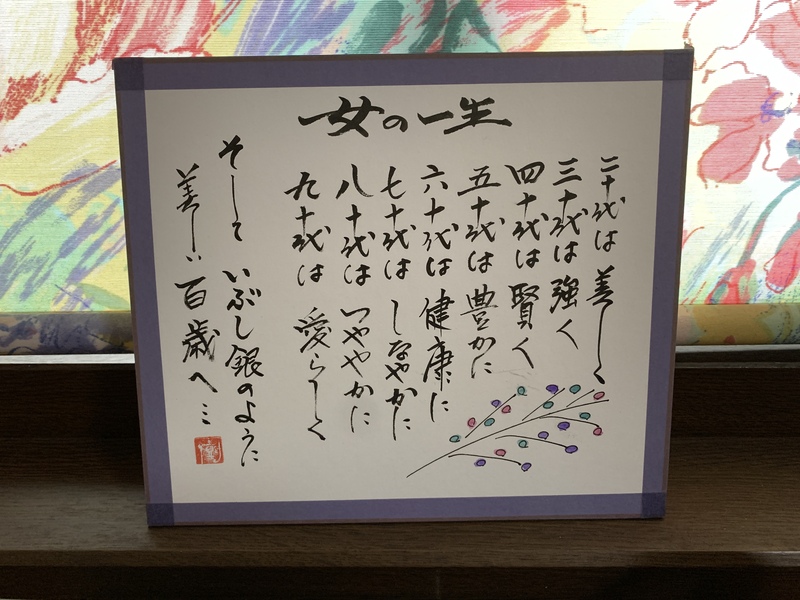 女の一生
二十代は 美しく
三十代は 強く
四十代は 賢く
五十代は 豊かに
六十代は 健康に
七十代は しなやかに
八十代は つややかに
九十代は 愛らしく
そして いぶし銀のように
美しい百歳へ…